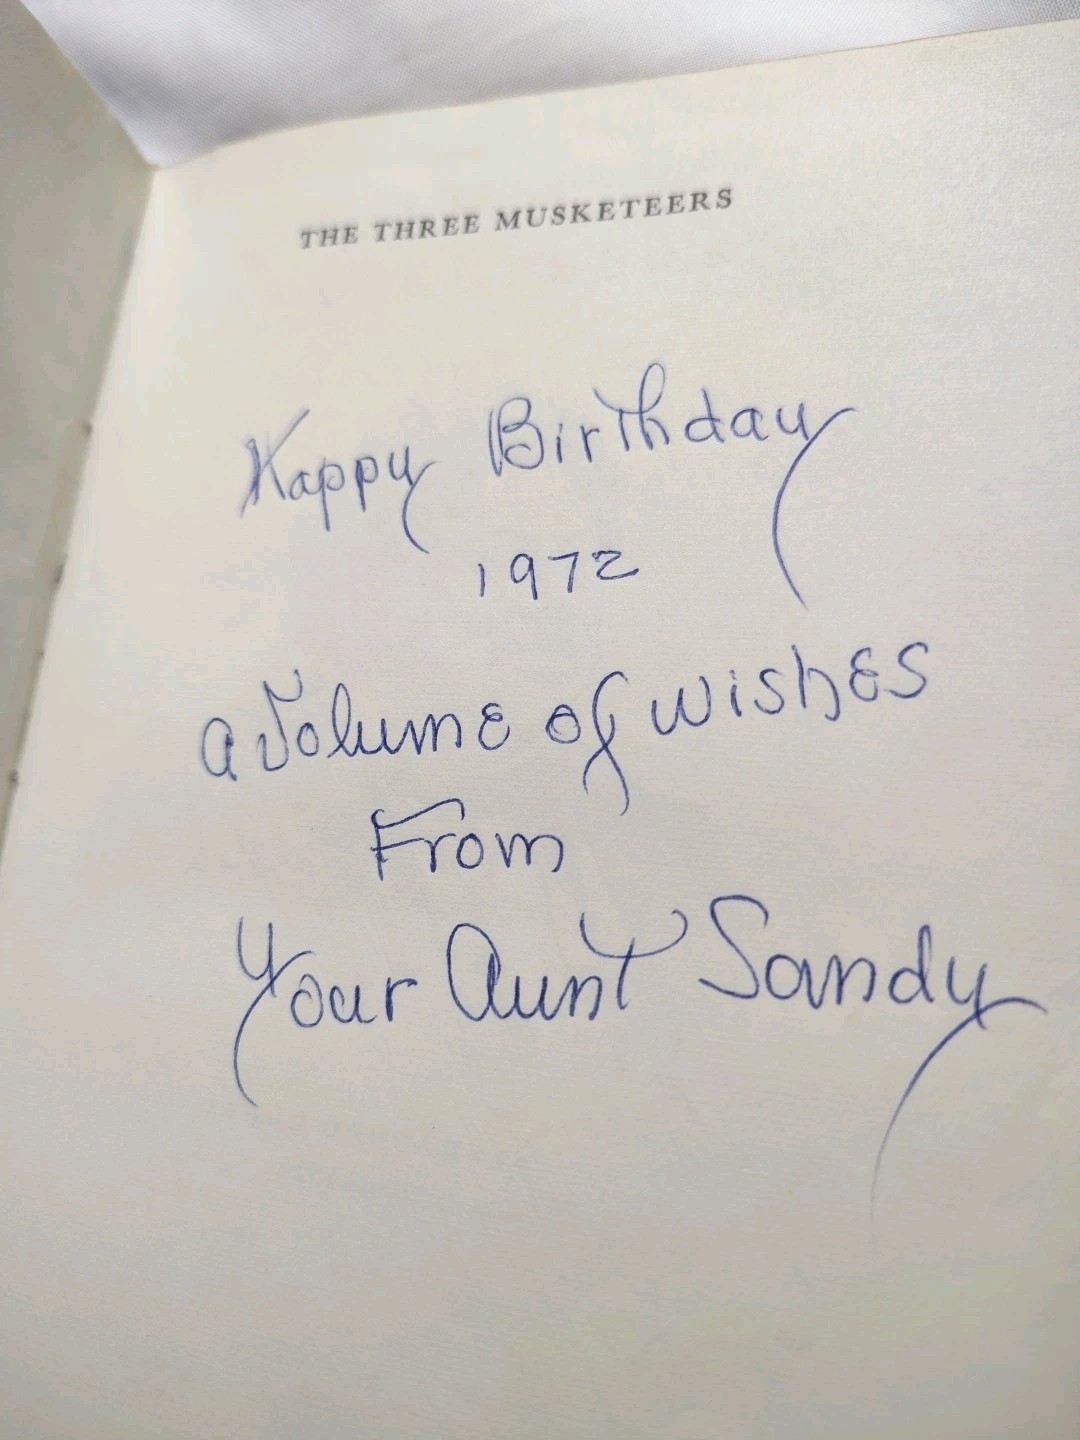 THE THREE MUSKETEERS
Happy Birthday
1972
a Volume of wishes
From
Your Aunt Sandy